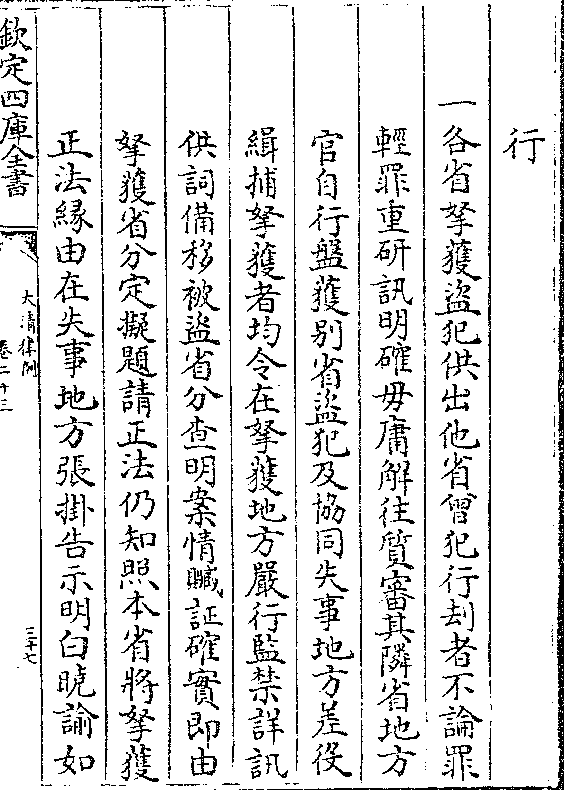 行
一各省拏獲盜犯供出他省曾犯行刦者不論罪
輕罪重研訊明確毋庸解往質審其隣省地方
官自行盤獲别省盜犯及協同失事地方差役
緝捕拏獲者均令在拏獲地方嚴行監禁詳訊
供詞備移被盜省分查明案情贓証確實即由
拏獲省分定擬題請正法仍知照本省將拏獲
正法緣由在失事地方張掛告示明白曉諭如
欽定四庫全書
大清律例
卷二十三
三十七